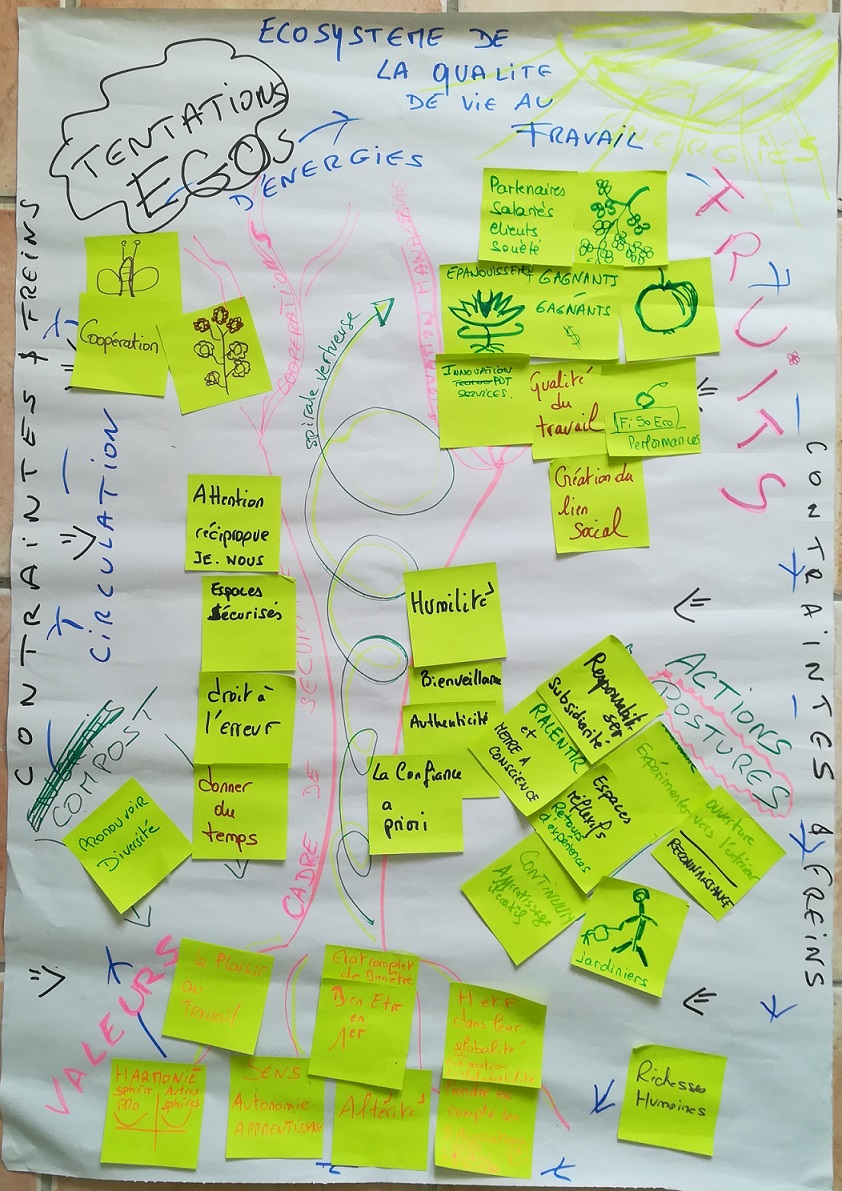 ECOSYSTEME DE
LA QUALITE
DE VIE AU
TRAVAIL
TENTATIONS
EGOS
D'ENERGIES
ENERGIES
CONTRAINTES & FREINS
CIRCULATION
Coopération
COOPERATIONS
spirale vertueuse
Partenaires
Salariés
clients
société
EPANOUISSEMENT
GAGNANTS
GAGNANTS
$
INNOVATION
PDT
SERVICES.
Qualité
du
travail
Fi So Eco
Performances
Création du
lien
Social
FRUITS
Attention
réciproque
JE. NOUS
Espaces
Sécurisés
droit à
l'erreur
donner
du
temps
CADRE DE SECURITE
Humilité
Bienveillance
Authenticité
La Confiance
a
priori
ACTIONS
POSTURES
Responsabilité
Subsidiarité
RALENTIR
et
METRE A
CONSCIENCE
Espaces
réflexifs
Retours
d'expériences
vers l'extérieur
ouverture
RECONNAISSANCE
CONTINUUM
Apprentissage
jardiniers
CONTRAINTES & FREINS
COMPOST
PROMOUVOIR
Diversité
VALEURS
Le Plaisir
au
Travail
Etat complet
de Bien être
Bien Etre
en
1er
H et F
dans leur
globalité
HARMONIE
sphère
PRO
Autres
sphères
SENS
Autonomie
APPRENTISSAGE
Altérité
Richesses
Humaines